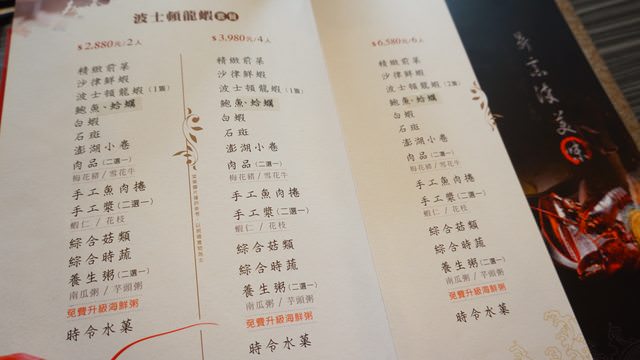 波士頓龍蝦套餐
$2,880元/2人
精緻前菜
沙律鮮蝦
波士頓龍蝦(1隻)
鮑魚、蛤蠣
白蝦
石斑
澎湖小卷
肉品(二選一)
梅花豬/雪花牛
手工魚肉捲
手工漿(二選一)
蝦仁/花枝
綜合菇類
綜合時蔬
養生粥(二選一)
南瓜粥/芋頭粥
免費升級海鮮粥
時令水菓
$3,980元/4人
精緻前菜
沙律鮮蝦
波士頓龍蝦(1隻)
鮑魚、蛤蠣
白蝦
石斑
澎湖小卷
肉品(二選一)
梅花豬/雪花牛
手工魚肉捲
手工漿(二選一)
蝦仁/花枝
綜合菇類
綜合時蔬
養生粥(二選一)
南瓜粥/芋頭粥
免費升級海鮮粥
時令水菓
$6,580元/6人
精緻前菜
沙律鮮蝦
波士頓龍蝦(2隻)
鮑魚、蛤蠣
白蝦
石斑
澎湖小卷
肉品(二選一)
梅花豬/雪花牛
手工魚肉捲
手工漿(二選一)
蝦仁/花枝
綜合菇類
綜合時蔬
養生粥(二選一)
南瓜粥/芋頭粥
免費升級海鮮粥
時令水菓